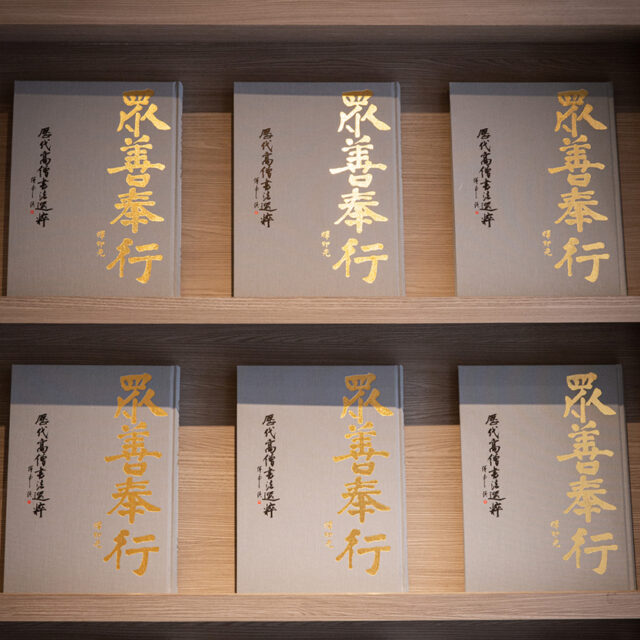 眾善奉行
釋印光
歷代高僧書法選粹
眾善奉行
釋印光
歷代高僧書法選粹
眾善奉行
釋印光
歷代高僧書法選粹
眾善奉行
釋印光
歷代高僧書法選粹
眾善奉行
釋印光
歷代高僧書法選粹
眾善奉行
釋印光
歷代高僧書法選粹